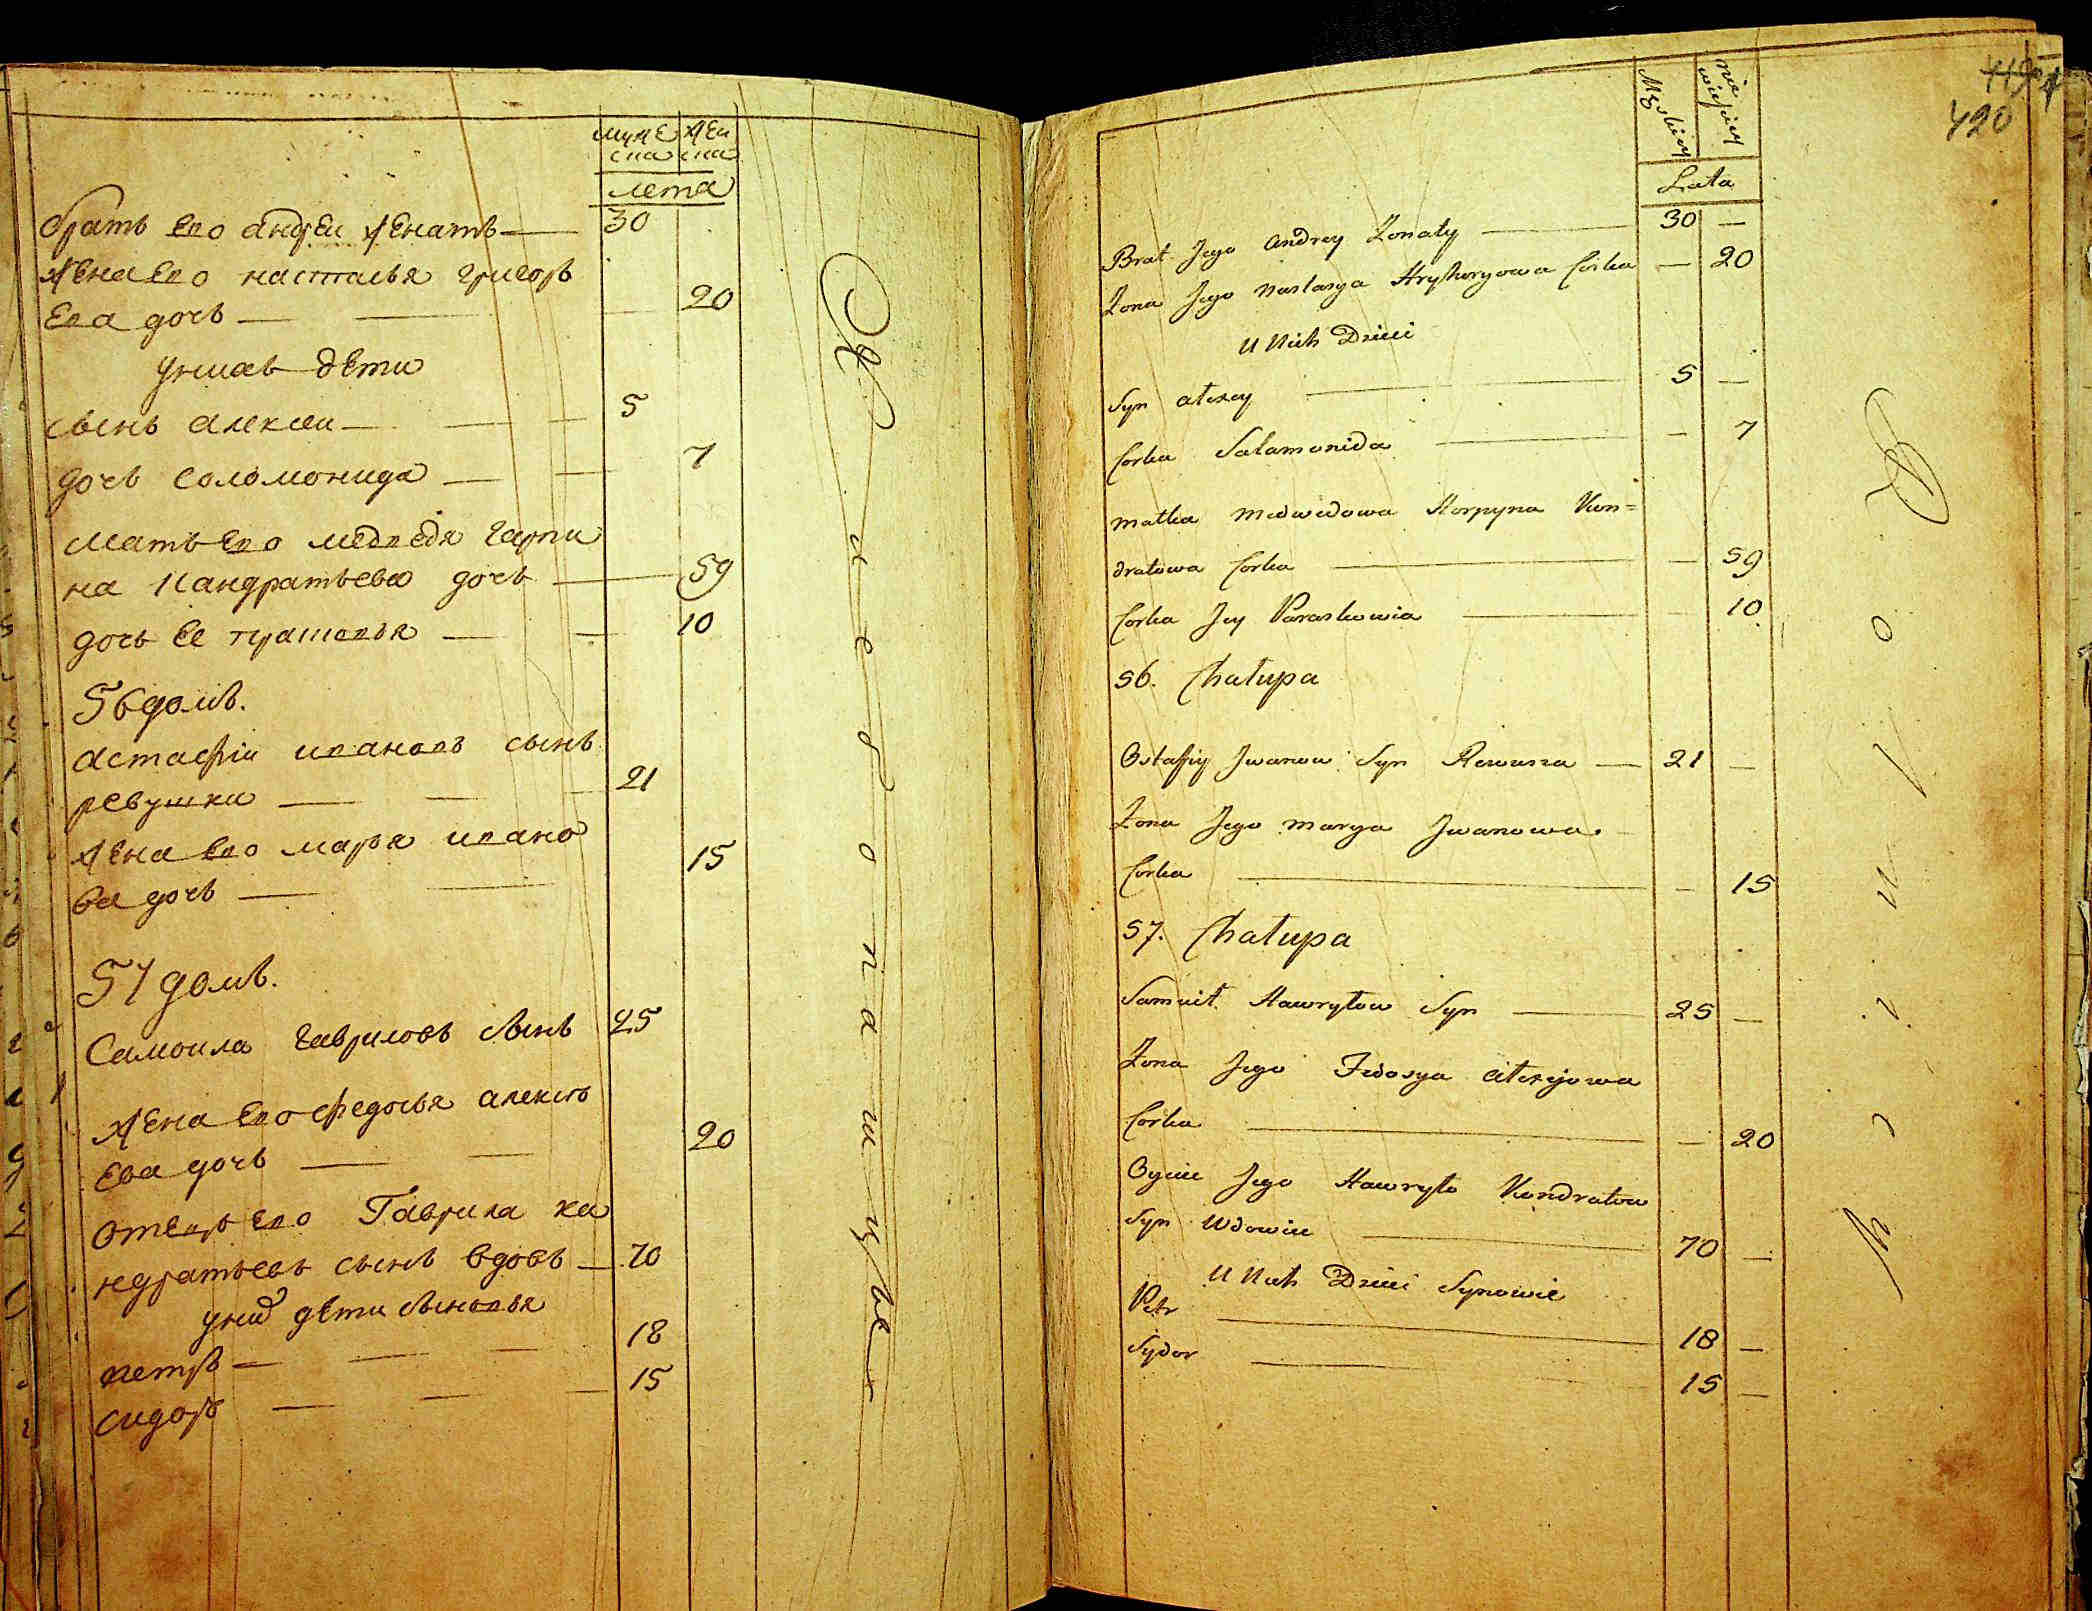 муже жен
ска ска
лета
братъ его андрей женатъ — 30
жена его настасья григорь
ева дочь — — 20
у нихъ дети
сынъ алексей — — 5
дочь соломонида — — 7
мать его медведя гарпи
на кандратьева дочь — 59
дочь ее прасковья — — 10
56 домъ.
астафiй ивановъ сынъ
ревушка — — — 21
жена его марья ивано
ва дочь — — 15
57 домъ.
Самоила гавриловъ сынъ 25
жена его федосья алексѣ
ева дочь — — 20
отецъ его Гаврила ка
ндратьевъ сынъ вдовъ — 70
у них дети сыновья
петръ — — — 18
сидоръ — — — 15
Хлебопашцы
420
Męskiey
Lata
Brat Jego Andrey Żonaty — 30 —
Żona Jego Nastasya Hryhoryowa Corka — 20
U Nich Dzieci
Syn Alexey — 5 —
Corka Salamonida — — 7
Matka Medwedowa Horpyna Kon=
dratowa Corka — — 59
Corka Jey Paraskowia — 10
56. Chałupa
Ostafiy Jwanow Syn Rewucza — 21 —
Żona Jego Marya Jwanowa
Corka — — 15
57. Chałupa
Samuił Hawryłow Syn — 25 —
Żona Jego Fedosya Alexyjowa
Corka — — 20
Oyciec Jego Hawryło Kondratow
Syn Wdowiec — 70 —
U Nich Dzieci Synowie
Petr — 18 —
Sydor — 15 —
Rolnicy